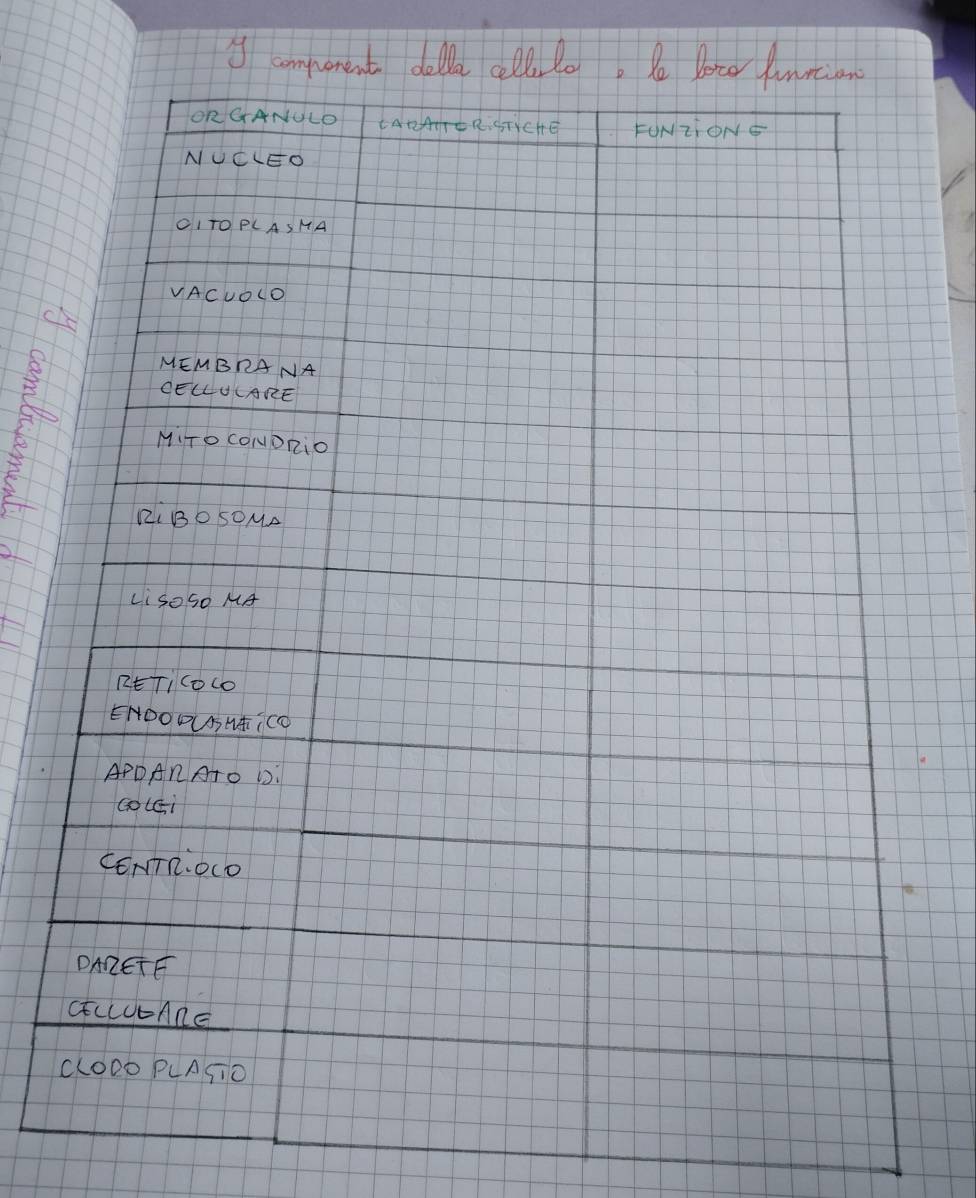 I componenti della cellula e le loro funzioni
ORGANULO CARATTERISTICHE FUNZIONE
NUCLEO
CITOPLASMA
VACUOLO
MEMBRANA
CELLULARE
MITOCONDRIO
RIBOSOMA
LISOSOMA
RETICOLO
ENDOPLASMATICO
APPARATO DI
GOLGI
CENTRIOLO
PARETE
CELLULARE
CLOROPLASTO
I cambiamenti